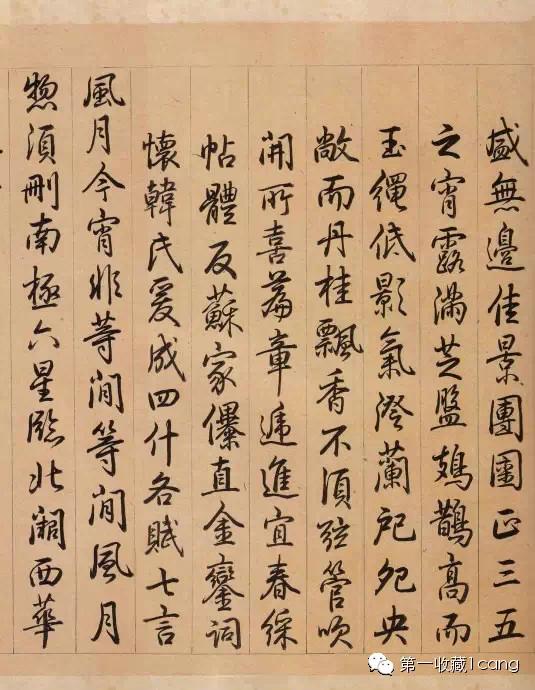 盛無邊佳景團圞正三五
之宵露滿芝盤鳷鵲高而
玉繩低影氣澄蘭戺夗央
敞而丹桂飄香不須弦管吹
開所喜篇章遞進宜春綵
帖體反蘇家儤直金鑾詞
懷韓氏爰成四什各賦七言
風月今宵非等閒等閒風月
惣須刪南極六星臨北闕西華
第一收藏1cang